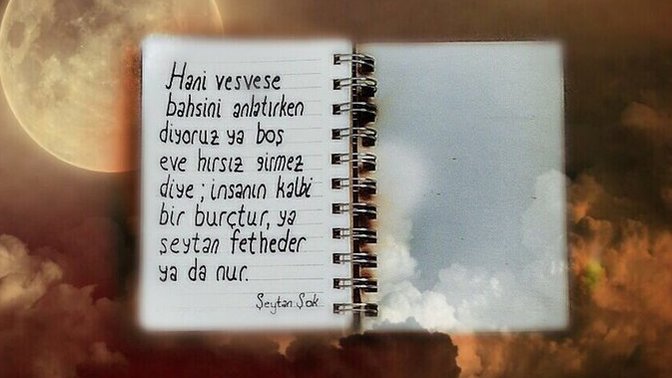 Hani vesvese
bahsini anlatırken
diyoruz ya boş
eve hırsız girmez
diye; insanın kalbi
bir burçtur, ya
şeytan fetheder
ya da nur.
Şeytan Şok